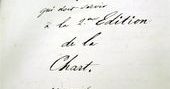 qui doit servir
à la 2me Edition
de la
Chart.